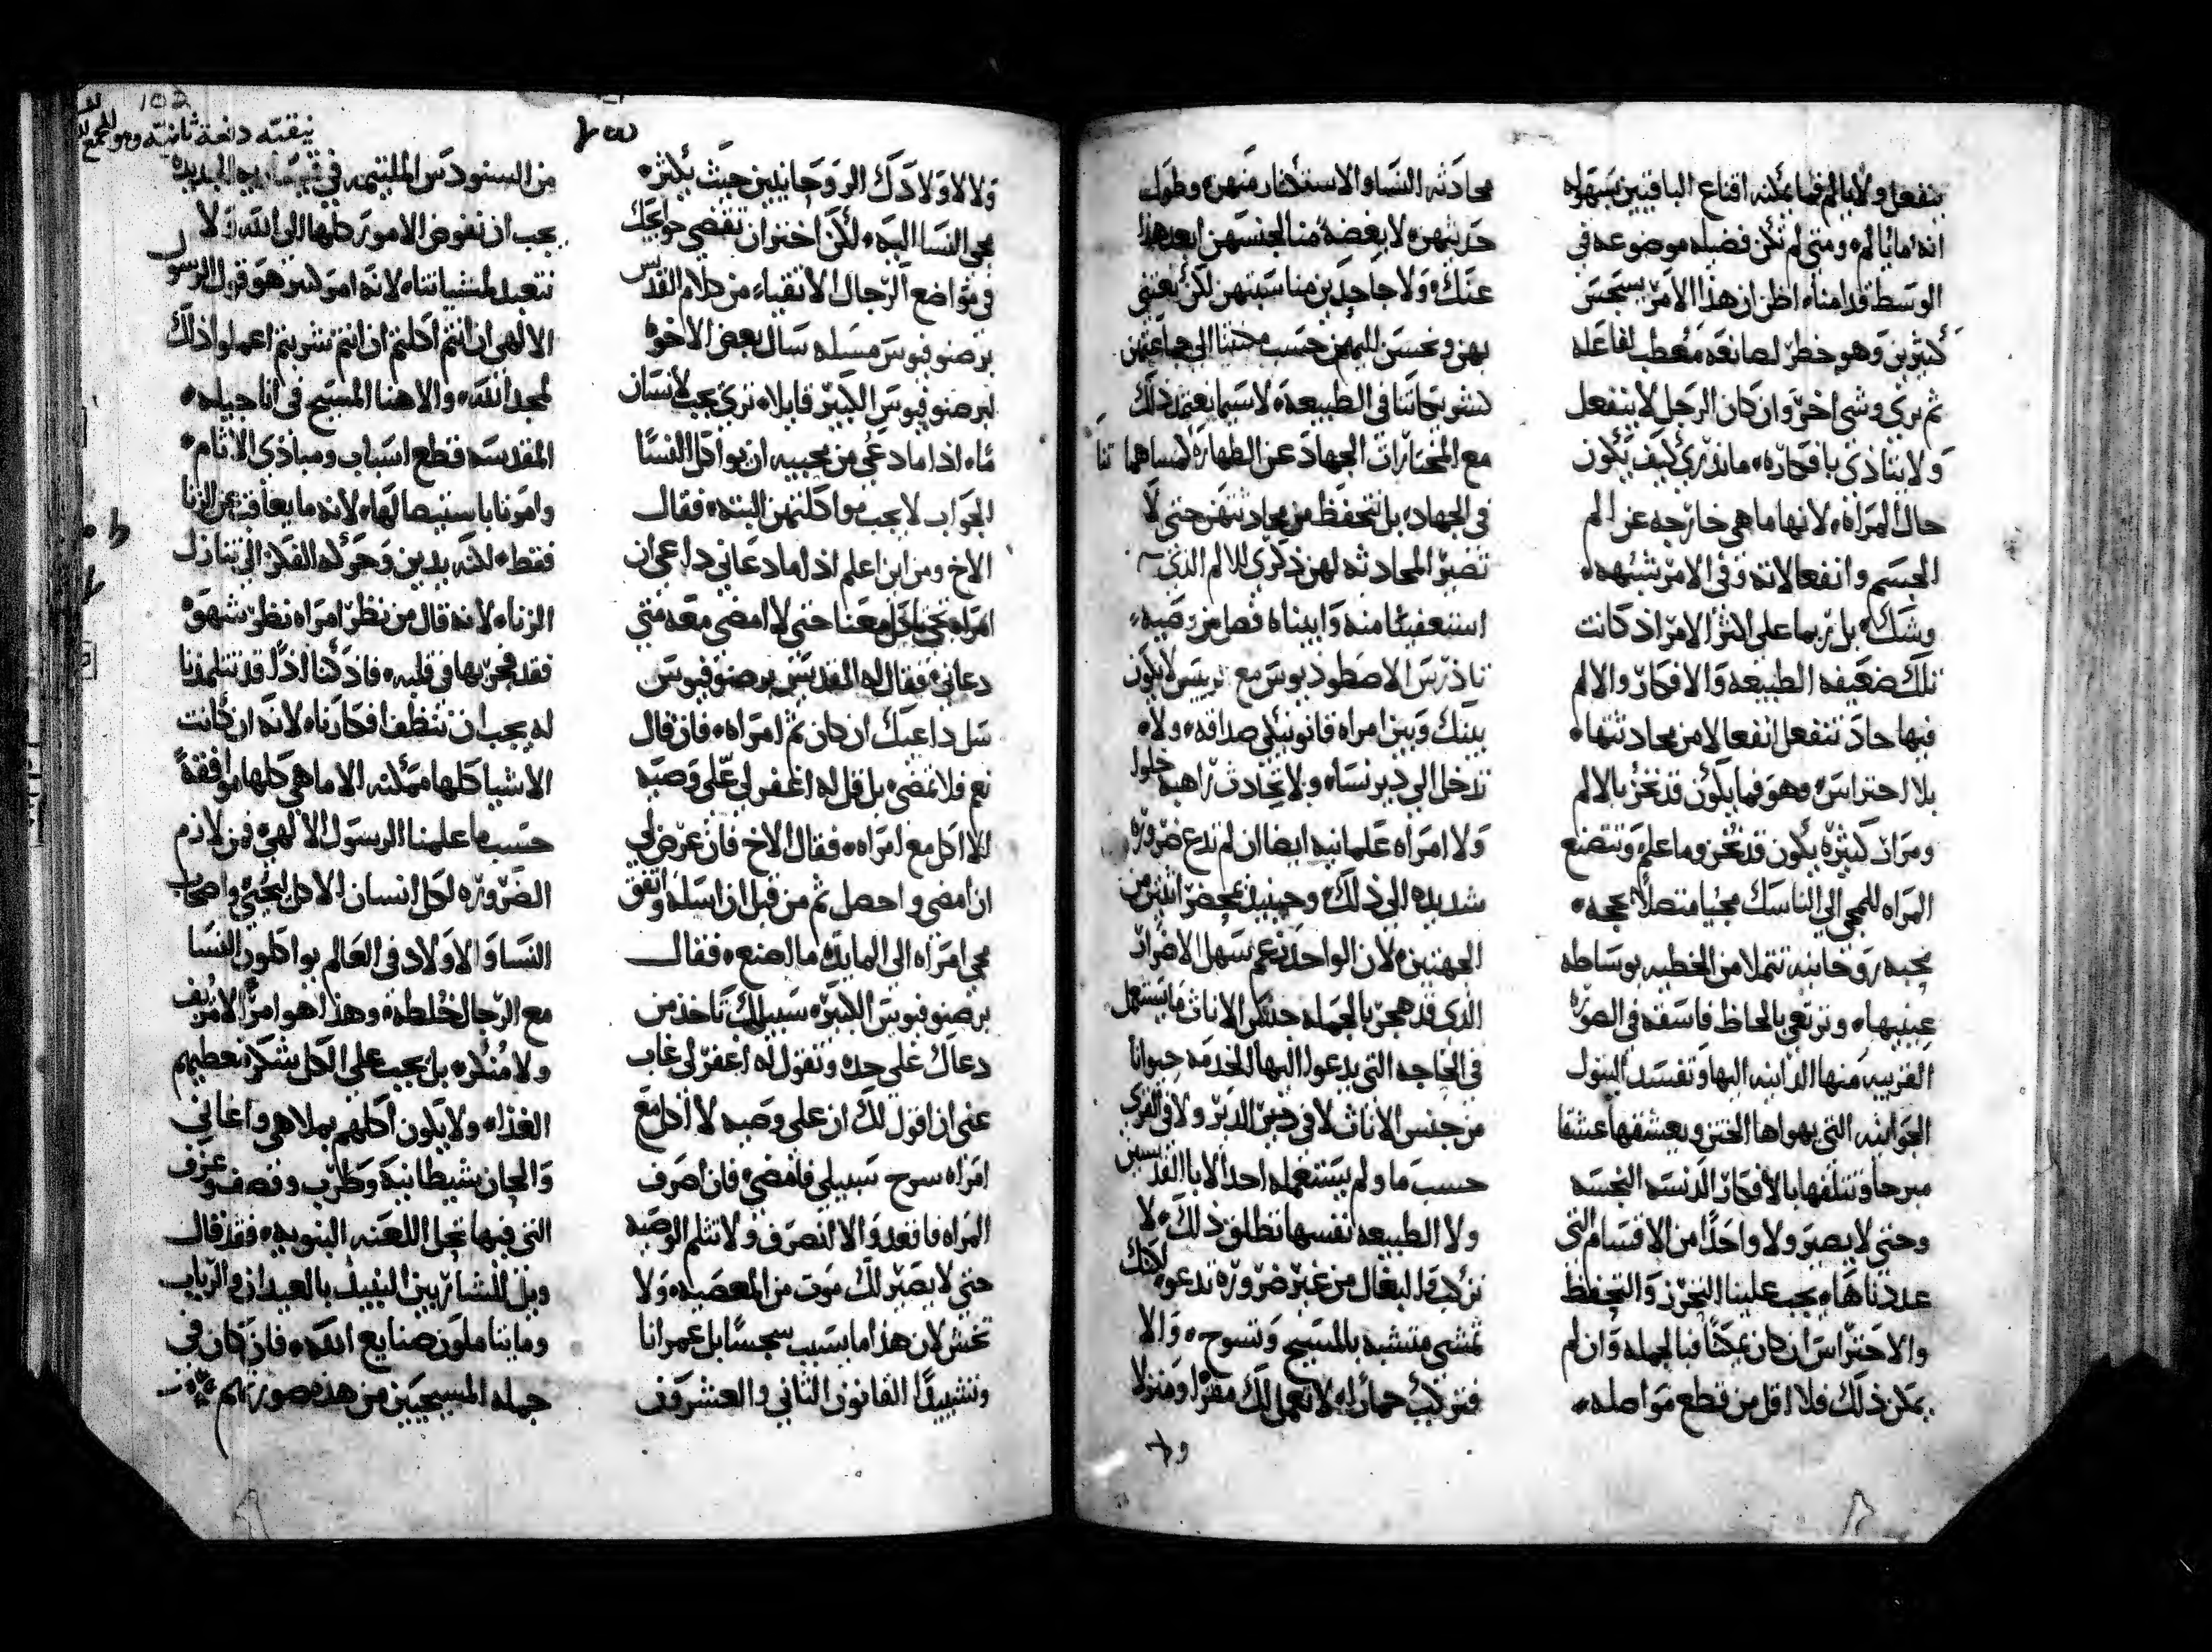 ينفعل ولا يالم فما يمكنه اقناع الباقيين بسهوله
انه ما يالم، ومتى لم تكن فضيله موضوعه في
الوسط قدامنا، اظن ان هذا الامر يستحسن
كثيرين وهو خطر لصانعه معطب لفاعله
ثم نرى وشي اخر، وان كان الرجل لا ينفعل
ولا يتاذى بافكاره، ما ندري كيف يكون
حال المراه، لانها ما هي خارجه عن الم
الجسم وانفعالاته وفي الامر شبهه،
وشك، بل ربما على اكثر الامر اذ كانت
تلك ضعيفه الطبيعه والافكار والالم
فيها حاد تنفعل انفعالا من محادثتها،
بلا احتراس، وهو فما يكون قد نخز بالالم
ومرار كثيره يكون قد نخز وما علم وتتصنع
المراه للمجي الى الناسك مجيا متصلا بحجه،
محبه روحانيه تتملا من الخطيه بوساطه
عينيها، وترتعي بالحاظ فاسقه في الصوره
القريبه منها الدانيه اليها وتفسد البتول
الجوانيه التي يهواها الختن ويعشقها عشقا
مبرحا وتتلفها بالافكار الدنسه النجسه
وحتى لا يصير ولا واحدا من الاقسام التي
عددناها، يجب علينا التحرز والتحفظ
والاحتراس ان كان ممكنا فبالجمله وان لم
يمكن ذلك فلا اقل من قطع مواصله،
محادثه النسا والاستكثار منهن، وطول
حديثهن، لا بغضة منا لجنسهن ابعد هذا
عنك، ولا جاحدين مناسبتهن لكن نعتني
بهن ونحسن اليهن حسب محبتنا الى جماعتهن
كشريكاتنا في الطبيعه، لا سيما نعتمد ذلك
مع المختارات الجهاد عن الطهاره لمساهماتنا
في الجهاد، بل نتحفظ من محادثتهن حتى لا
تصير المحادثه لهن ذكرى للالم الذي
استعفينا منه وابيناه فصل من وصيه،
تاذرس الاصطوديوس مع رييس لا يكون
بينك وبين امراه قانونيكي صداقه، ولا،
تدخل الى دير نسا، ولا تحادث راهبه خلوا
ولا امراه علمانيه ايضا ان لم تدع ضروره
شديده الى ذلك، وحينيذ بمحضر اثنين من
الجهتين، لان الواحد زعم سهل الاضرار
الذي قد هجر بالجمله جنس الاناث ما يستعمل
في الحاجه التي يدعوا اليها الخدمه حيوانا
من جنس الاناث لا في دير الدير ولا في القرى
حسب ما ولم يستعمله احد الابا القديسين
ولا الطبيعه نفسها تطلق ذلك، لا
تركب البغال من غير ضروره تدعو، لكنك
تمشي متشبه بالمسيح وتسوح، والا
فتركب حمارا، لا تعمل لك مقرا ومنزلا
ولا لاولادك الروحانيين حيث يكثر،
مجي النسا اليه، لكن اختر ان تقضي حوايجك
في مواضع الرجال الاتقياء من كلام القديس
برصنوفيوس مسله سال بعض الاخوه
لبرصنوفيوس الكبير قايلا، ترى يجب لانسان
ما، اذا ما دعي من محبيه ان يواكل النسا
الجواب لا يجب مواكلتهن البته، فقال
الاخ ومن اين اعلم اذا ما دعاني داعي ان
امراه تجي تاكل معنا حتى لا امضي معه متى
دعاني، فقال له القديس برصنوفيوس
سل داعيك ان كان ثم امراه، فان قال
نعم فلا تمضي، بل قل له اغفر لي علي وصيه
الا اكل مع امراه، فقال الاخ فان عرض لي
ان امضي واحصل ثم من قبل ان اسله واتفق
مجي امراه الى المايده ما اصنع، فقال
برصنوفيوس الكبير، سبيلك تاخذ من
دعاك على حده وتقول له اغفر لي غاب
عني ان اقول لك ان علي وصيه لا اكل مع
امراه سرح سبيلي فامضي، فان اصرف
المراه فاقعد والا انصرف ولا تثلم الوصيه
حتى لا يصير لك موت من المعصيه، ولا
تخش لان هذا ما يسبب سجسا بل عمرانا
وتشييدا القانون الثاني والعشرون
من السنودس الملتيمه في
يجب ان نفوض الامور كلها الى الله ولا
نتعبد لمشياتنا، لانه امر كبير هو قول الرسول
الالهي ان انتم اكلتم ان انتم شربتم اعملوا ذلك
لمجد الله، والاهنا المسيح في اناجيله،
المقدسه قطع اسباب ومبادي الاثام،
وامرنا باستيصالها، لانه ما يعاقب عن الزنا
فقط، لكنه يدين وحركه الفكر التي تنازل
الزنا، لانه قال من نظر امراه نظر شهوه
فقد فجر بها في قلبه، فاذ كنا اذا قد تتلمذنا
له يجب ان ننظف افكارنا، لانه ان كانت
الاشيا كلها ممكنه الا ما هي كلها موافقة
حسب ما علمنا الرسول الالهي، فمن لازم
الضروره لكل انسان الاكل ليحيى واصحاب
النسا والاولاد في العالم يواكلون النسا
مع الرجال خلطه، وهذا هو امر لا مزيف
ولا منكر، بل يجب على الكل شكر معطيهم
الغذا، ولا يكون اكلهم بملاهي واغاني
والحان شيطانيه وطرب وقصف وعزف
التي فيها تحل اللعنه النبويه، فقد قال
ويل للشاربين النبيذ بالعيدان والرباب
وما يتاملون صنايع الله، فان كان في
جمله المسيحيين من هذه صورتهم